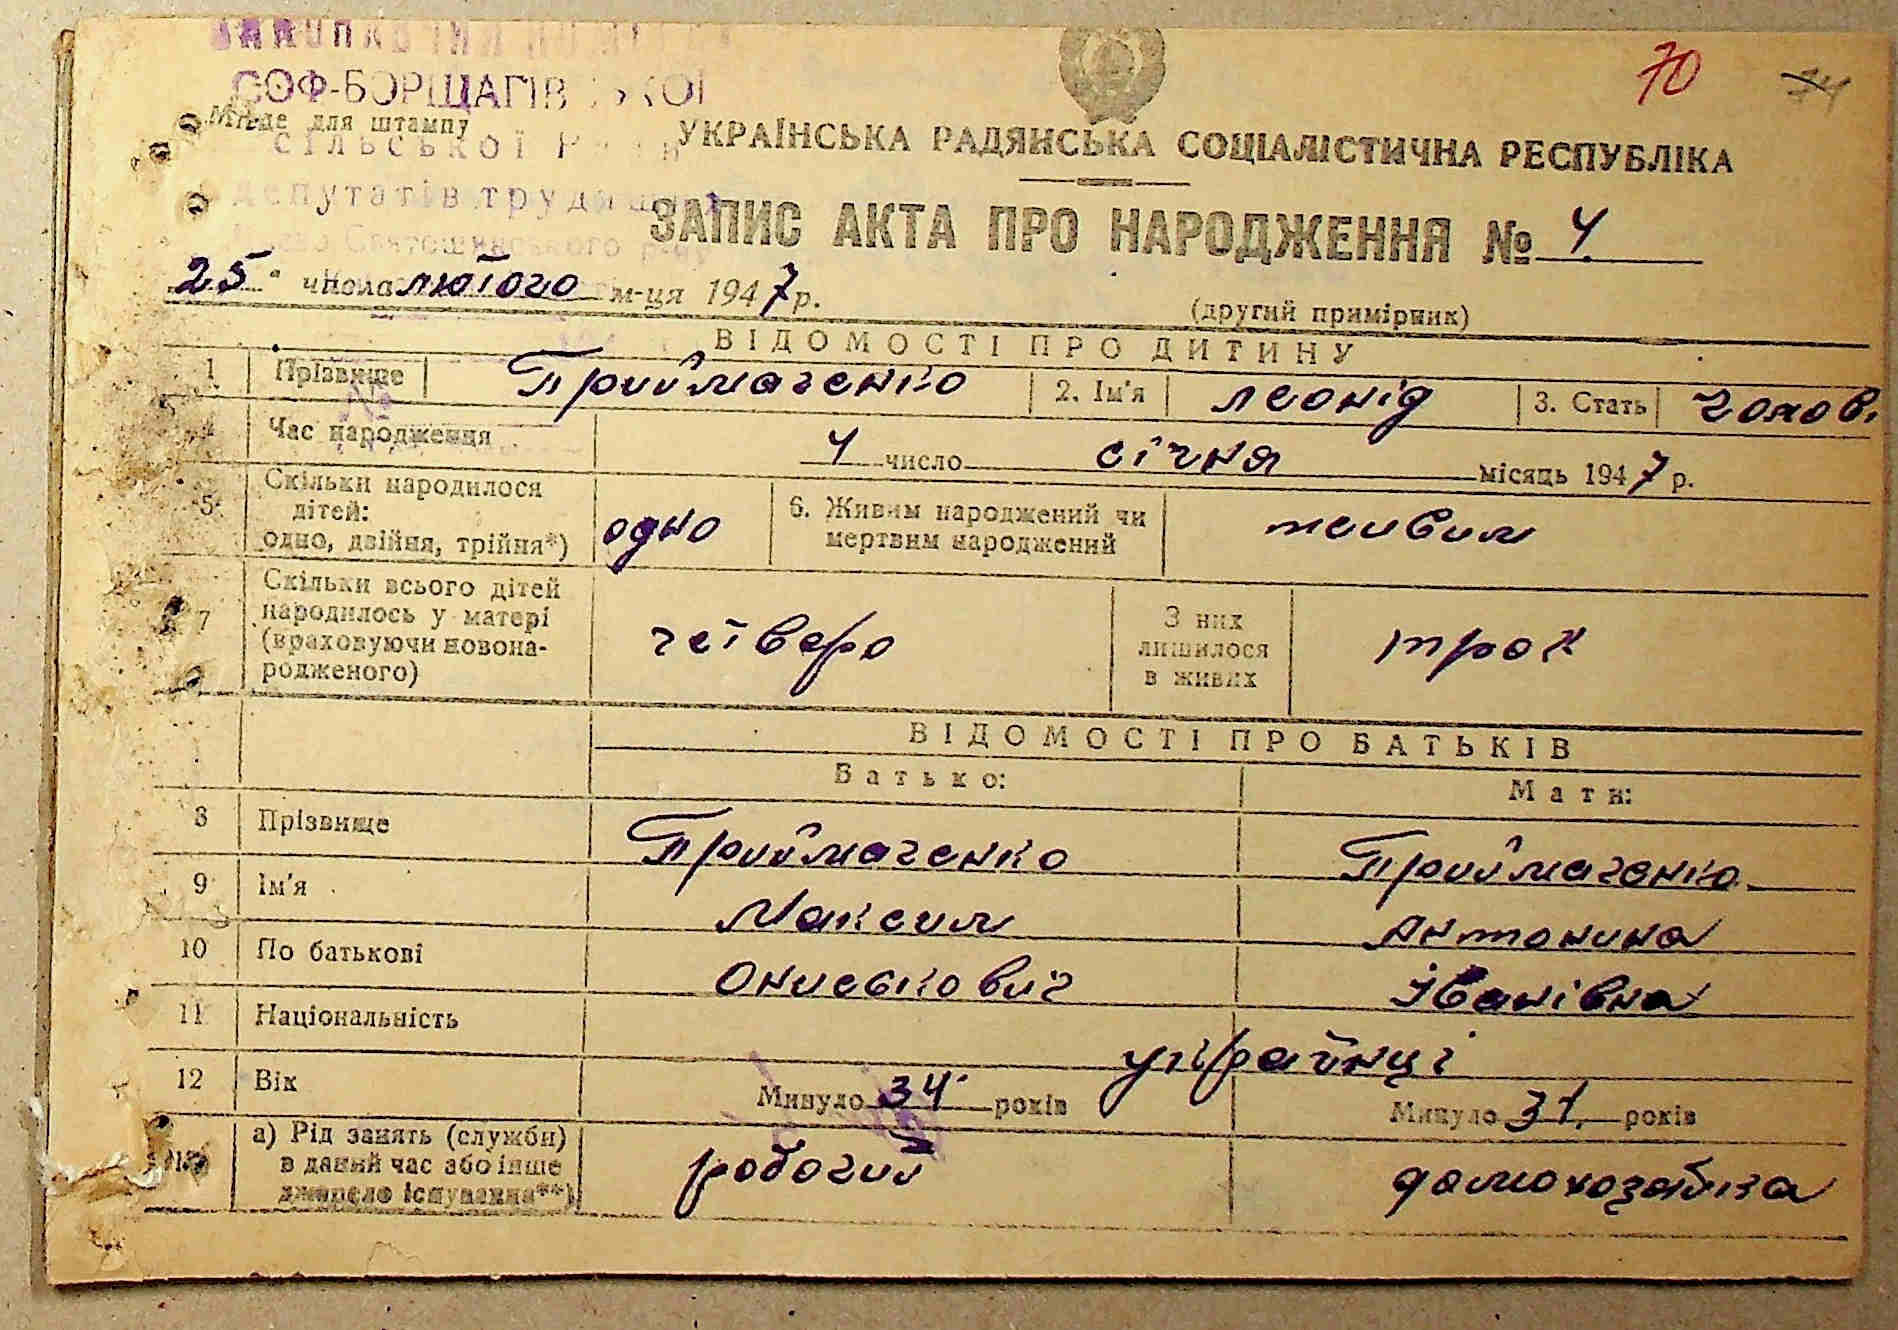 ВИКОНКОМ
СОФ-БОРЩАГІВСЬКОЇ
Місце для штампу
сільської Ради
депутатів трудящих
Києво Святошинського р-ну
70 74
УКРАЇНСЬКА РАДЯНСЬКА СОЦІАЛІСТИЧНА РЕСПУБЛІКА
ЗАПИС АКТА ПРО НАРОДЖЕННЯ № 4
25 " числа лютого м-ця 1947 р.
(другий примірник)
ВІДОМОСТІ ПРО ДИТИНУ
1 Прізвище Приймаченко 2. Ім'я Леонід 3. Стать Чолов.
Час народження 4 число січня місяць 1947 р.
5 Скільки народилося дітей: одно, двійня, трійня*) одно 6. Живим народжений чи мертвим народжений живим
7 Скільки всього дітей народилось у матері (враховуючи новонародженого) четверо З них лишилося в живих троє
ВІДОМОСТІ ПРО БАТЬКІВ
Батько: Мати:
8 Прізвище Приймаченко Приймаченко
9 Ім'я Максим Антонина
10 По батькові Ониськович Іванівна
11 Національність українці
12 Вік Минуло 34 років Минуло 31 років
13 а) Рід занять (служби) в даний час або інше джерело існування**) робочий домохозяйка